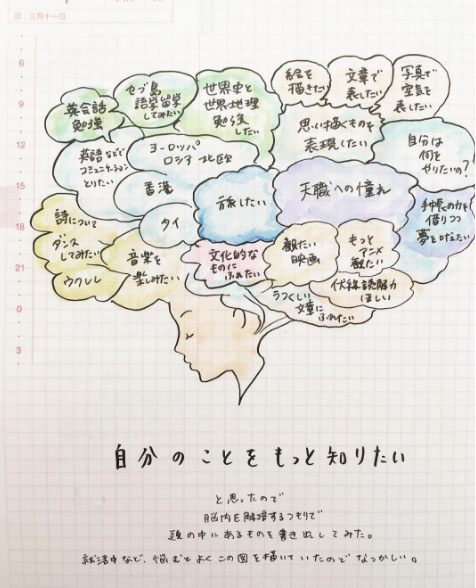 日:三月十一日
6
9
12
15
18
21
0
3
英会話
勉強
セブ島
語学留学
してみたい
世界史と
世界地理
勉強
したい
絵を
描きたい
文章で
表したい
写真で
空気を
表したい
英語などで
コミュニケーション
とりたい
ヨーロッパ
ロシア 北欧
香港
タイ
旅したい
思い描くものを
表現したい
自分は
何を
やりたいの?
天職への憧れ
手帳の力を
借りつつ
夢を叶えたい
詩について
ダンス
してみたい
ウクレレ
音楽を
楽しみたい
文化的な
ものに
ふれたい
観たい
映画
もっと
アニメ
観たい
伏線読解力
ほしい
うつくしい
文章に
ふれたい
自分のことをもっと知りたい
と思ったので
脳内を解剖するつもりで
頭の中にあるものを書き出してみた。
就活中など、悩むとよくこの図を描いていたのでなつかしい。